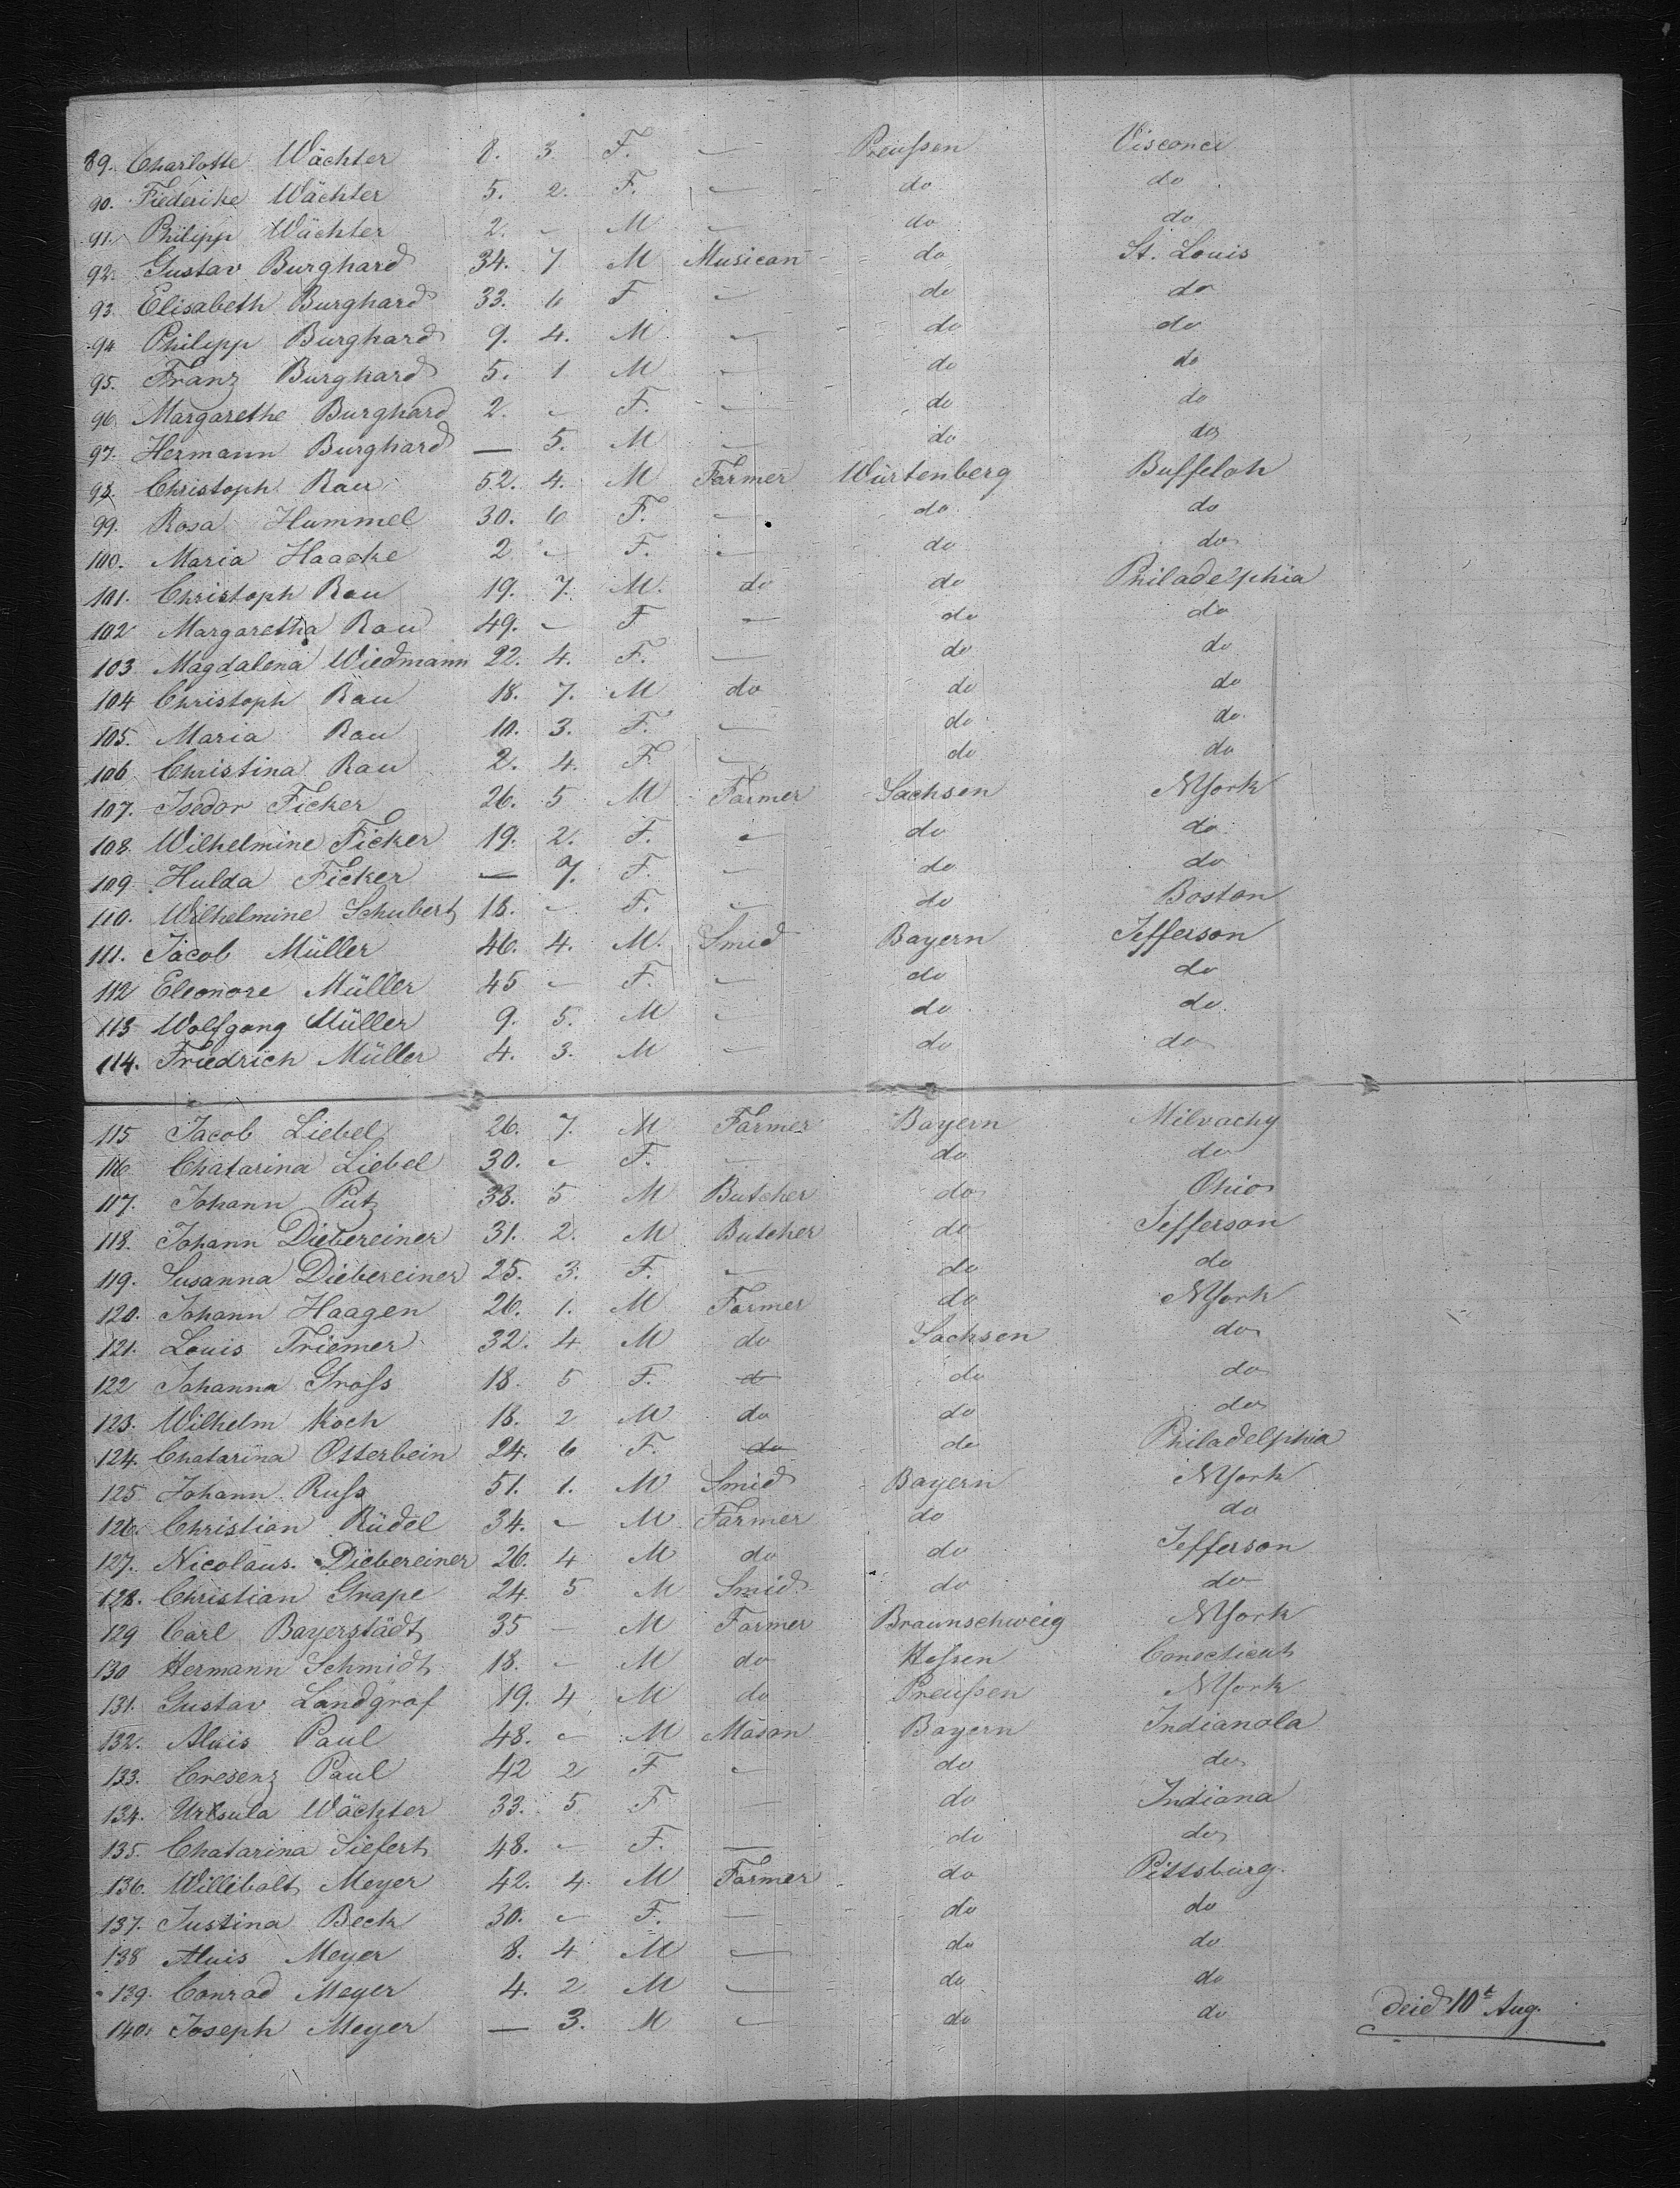 89. Charlotte Wächter 8. 3. F. — Preußen Visconci
90. Fiederike Wächter 5. 2. F. — do do
91. Philipp Wächter 2. — M — do do
92. Gustav Burghard 34. 7 M Musican do St. Louis
93. Elisabeth Burghard 33. 6 F — do do
94 Philipp Burghard 9. 4. M — do do
95. Franz Burghard 5. 1 M — do do
96 Margarethe Burghard 2. — F. — do do
97. Hermann Burghard — 5. M — do do
98. Christoph Rau 52. 4. M Farmer Würtenberg Buffeloh
99. Rosa Hummel 30. 6 F. — do do
100. Maria Haacke 2 — F. — do do
101. Christoph Rau 19. 7. M. do do Philadelphia
102 Margaretha Rau 49. — F — do do
103 Magdalena Wiedmann 22. 4. F. — do do
104 Christoph Rau 18. 7. M do do do
105. Maria Rau 10. 3. F. — do do
106 Christina Rau 2. 4. F. — do do
107. Isedor Ficker 26. 5 M Farmer Sachsen NYork
108. Wilhelmine Ficker 19. 2. F. — do do
109 Hulda Ficker — 7. F. — do do
110. Wilhelmine Schubert 18. — F. — do Boston
111. Jacob Müller 46. 4. M. Smid Bayern Jefferson
112 Eleonore Müller 45 — F. — do do
113 Wolfgang Müller 9. 5. M — do do
114. Friedrich Müller 4. 3. M — do do
115 Jacob Liebel 26. 7. M Farmer Bayern Milvachy
116 Chatarina Liebel 30. — F. — do do
117. Johann Putz 38. 5 M Butcher do Ohio
118. Johann Diebereiner 31. 2. M Butcher do Jefferson
119. Susanna Diebereiner 25. 3. F. — do do
120. Johann Haagen 26. 1. M Farmer do NYork
121. Louis Friemer 32. 4 M do Sachsen do
122 Johanna Groß 18. 5 F. do do do
123. Wilhelm Koch 18. 2 M do do do
124. Chatarina Otterbein 24. 6 F. do do Philadelphia
125 Johann Ruß 51. 1. M Smid Bayern NYork
126. Christian Rüdel 34. — M Farmer do do
127. Nicolaus Diebereiner 26. 4 M do do Jefferson
128. Christian Grape 24. 5 M Smid do do
129 Carl Bayerstädt 35 — M Farmer Braunschweig NYork
130 Hermann Schmidt 18. — M do Heßen Conecticut
131. Gustav Landgraf 19. 4 M do Preußen NYork
132. Alois Paul 48. — M Mason Bayern Indianola
133. Cresenz Paul 42 2 F — do do
134. Ursula Wächter 33. 5 F — do Indiana
135. Chatarina Siefert 48. — F. — do do
136. Willibolt Meyer 42. 4 M Farmer do Pittsburg.
137. Justina Beck 30. — F. — do do
138 Alois Meyer 8. 4 M — do do
139. Conrad Meyer 4. 2 M — do do
140. Joseph Meyer — 3. M — do do deid 10t Aug.